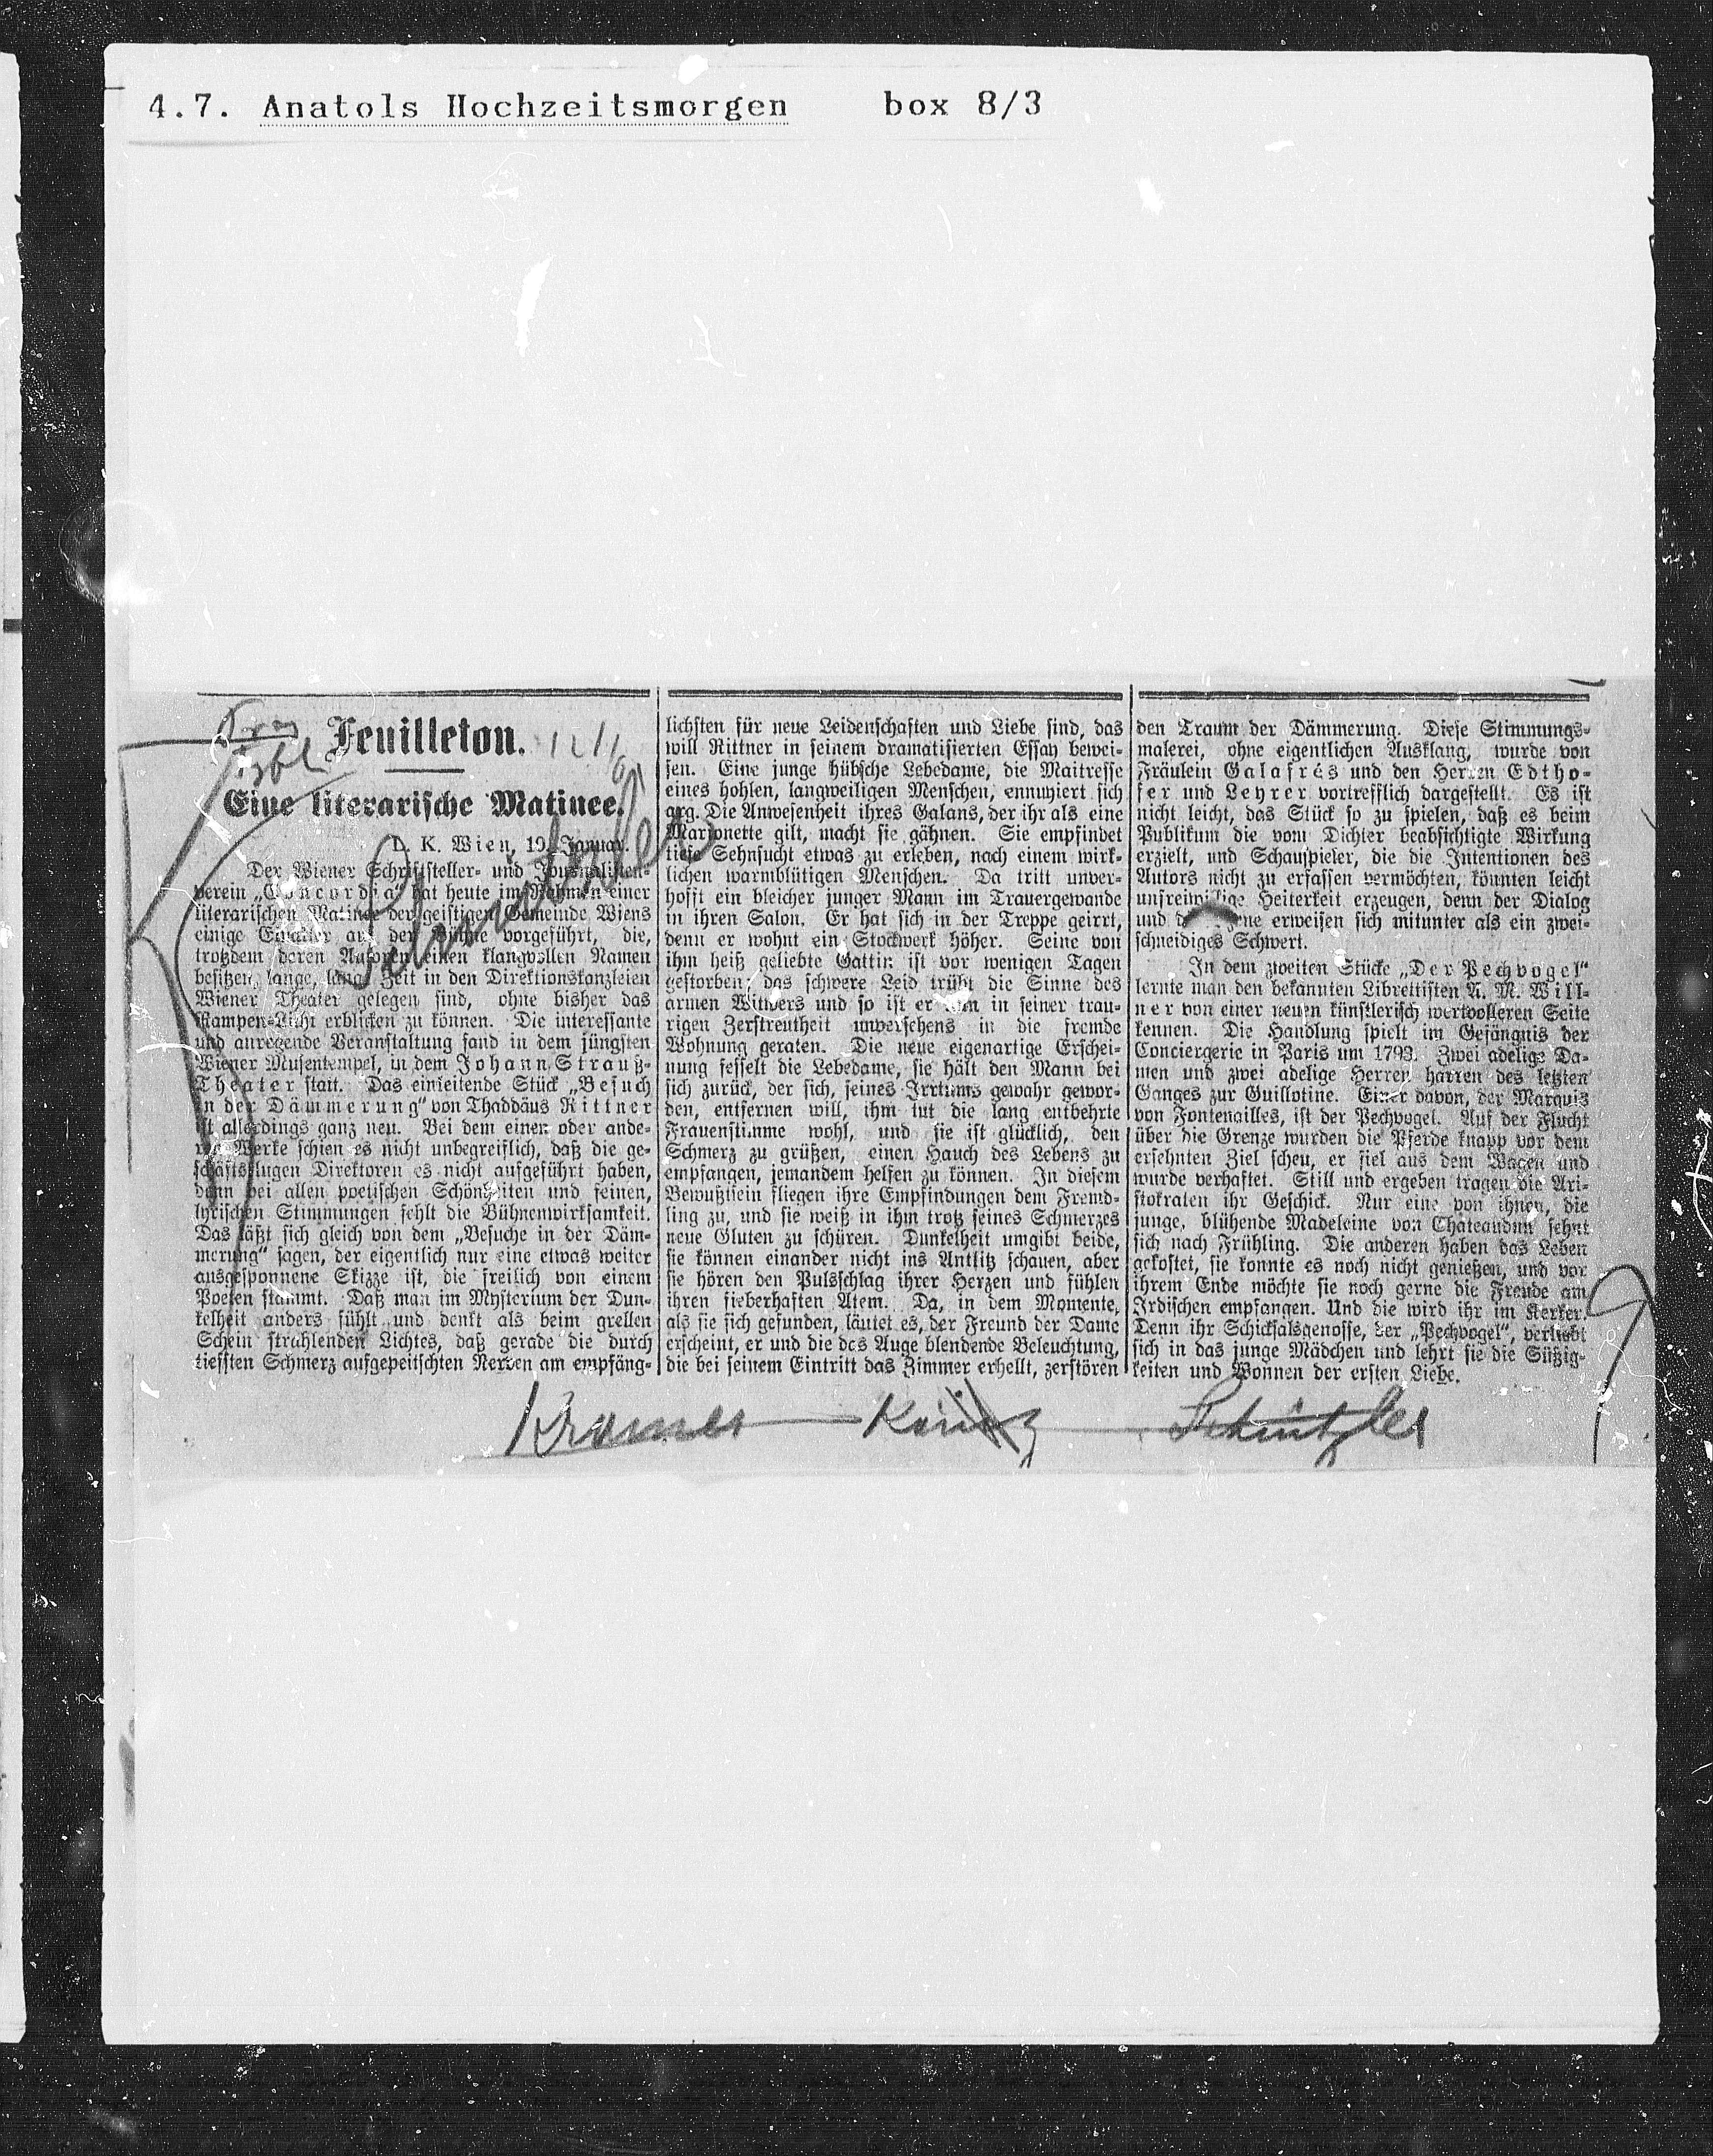 4.7. Anatols Hochzeitsmorgen box 8/3
Feuilleton.
Eine literarische Matinee.
L. K. Wien, 19. Januar.
Der Wiener Schriftsteller- und Journalisten-
verein „Concordia" hat heute im Rahmen einer
literarischen Matinee der geistigen Gemeinde Wiens
einige Einakter auf der Bühne vorgeführt, die,
trotzdem deren Autoren einen klangvollen Namen
besitzen, lange, lange Zeit in den Direktionskanzleien
Wiener Theater gelegen sind, ohne bisher das
Rampen-Licht erblicken zu können. Die interessante
und anregende Veranstaltung fand in dem jüngsten
Wiener Musentempel, in dem Johann Strauß-
Theater statt. Das einleitende Stück „Besuch
in der Dämmerung" von Thaddäus Rittner
ist allerdings ganz neu. Bei dem einen oder ande-
ren Werke schien es nicht unbegreiflich, daß die ge-
schäftsklugen Direktoren es nicht aufgeführt haben,
denn bei allen poetischen Schönheiten und feinen,
lyrischen Stimmungen fehlt die Bühnenwirksamkeit.
Das läßt sich gleich von dem „Besuche in der Däm-
merung" sagen, der eigentlich nur eine etwas weiter
ausgesponnene Skizze ist, die freilich von einem
Poeten stammt. Daß man im Mysterium der Dun-
kelheit anders fühlt und denkt als beim grellen
Schein strahlenden Lichtes, daß gerade die durch
tiefsten Schmerz aufgepeitschten Nerven am empfäng-
lichsten für neue Leidenschaften und Liebe sind, das
will Rittner in seinem dramatisierten Essay bewei-
sen. Eine junge hübsche Lebedame, die Maitresse
eines hohlen, langweiligen Menschen, ennuyiert sich
arg. Die Anwesenheit ihres Galans, der ihr als eine
Marionette gilt, macht sie gähnen. Sie empfindet
tiefe Sehnsucht etwas zu erleben, nach einem wirk-
lichen warmblütigen Menschen. Da tritt unver-
hofft ein bleicher junger Mann im Trauergewande
in ihren Salon. Er hat sich in der Treppe geirrt,
denn er wohnt ein Stockwerk höher. Seine von
ihm heiß geliebte Gattin ist vor wenigen Tagen
gestorben; das schwere Leid trübt die Sinne des
armen Witwers und so ist er in seiner trau-
rigen Zerstreutheit unversehens in die fremde
Wohnung geraten. Die neue eigenartige Erschei-
nung fesselt die Lebedame, sie hält den Mann bei
sich zurück, der sich, seines Irrtums gewahr gewor-
den, entfernen will, ihm tut die lang entbehrte
Frauenstimme wohl, und sie ist glücklich, den
Schmerz zu grüßen, einen Hauch des Lebens zu
empfangen, jemandem helfen zu können. In diesem
Bewußtsein fliegen ihre Empfindungen dem Fremd-
ling zu, und sie weiß in ihm trotz seines Schmerzes
neue Gluten zu schüren. Dunkelheit umgibt beide,
sie können einander nicht ins Antlitz schauen, aber
sie hören den Pulsschlag ihrer Herzen und fühlen
ihren fieberhaften Atem. Da, in dem Momente,
als sie sich gefunden, läutet es, der Freund der Dame
erscheint, er und die das Auge blendende Beleuchtung,
die bei seinem Eintritt das Zimmer erhellt, zerstören
den Traum der Dämmerung. Diese Stimmungs-
malerei, ohne eigentlichen Ausklang, wurde von
Fräulein Galafrés und den Herren Edtho-
fer und Leyrer vortrefflich dargestellt. Es ist
nicht leicht, das Stück so zu spielen, daß es beim
Publikum die vom Dichter beabsichtigte Wirkung
erzielt, und Schauspieler, die die Intentionen des
Autors nicht zu erfassen vermöchten, könnten leicht
unfreiwillige Heiterkeit erzeugen, denn der Dialog
und erweisen sich mitunter als ein zwei-
schneidiges Schwert.
In dem zweiten Stücke „Der Pechvogel"
lernte man den bekannten Librettisten A. M. Will-
ner von einer neuen künstlerisch wertvolleren Seite
kennen. Die Handlung spielt im Gefängnis der
Conciergerie in Paris um 1793. Zwei adelige Da-
men und zwei adelige Herren harren des letzten
Ganges zur Guillotine. Einer davon, der Marquis
von Fontenailles, ist der Pechvogel. Auf der Flucht
über die Grenze wurden die Pferde knapp vor dem
ersehnten Ziel scheu, er fiel aus dem Wagen und
wurde verhaftet. Still und ergeben tragen die Ari-
stokraten ihr Geschick. Nur eine von ihnen, die
junge, blühende Madeleine von Chateaudun sehnt
sich nach Frühling. Die anderen haben das Leben
gekostet, sie konnte es noch nicht genießen, und vor
ihrem Ende möchte sie noch gerne die Freude am
Irdischen empfangen. Und die wird ihr im Kerker.
Denn ihr Schicksalsgenosse, der „Pechvogel", verliebt
sich in das junge Mädchen und lehrt sie die Süßig-
keiten und Wonnen der ersten Liebe.
Schnitzler